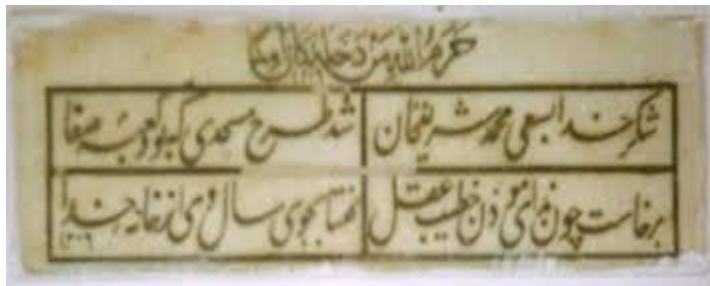 حرم الله من دخله كان آمنا
شکر خدا بسعی محمد شریفخان شد طرح مسجدی که بود کعبه صفا
برخاست چون ندای موذن خطیب عقل گفتا بجوی سال وی از خانه خدا